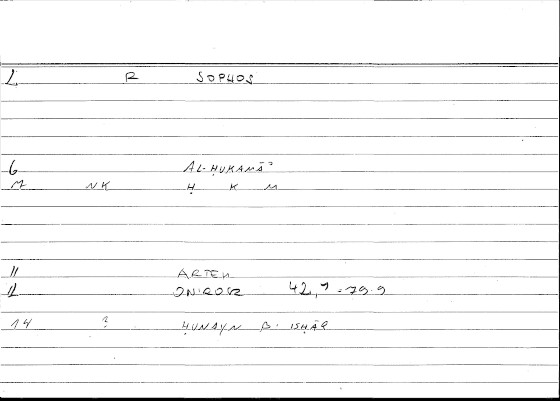 L R SOPHOS
6 AL-ḤUKAMĀʾ
M NK Ḥ K M
11 ARTEM
12 ONIROCR 42,9 = 79.9
14 ? ḤUNAYN B. ISḤĀQ